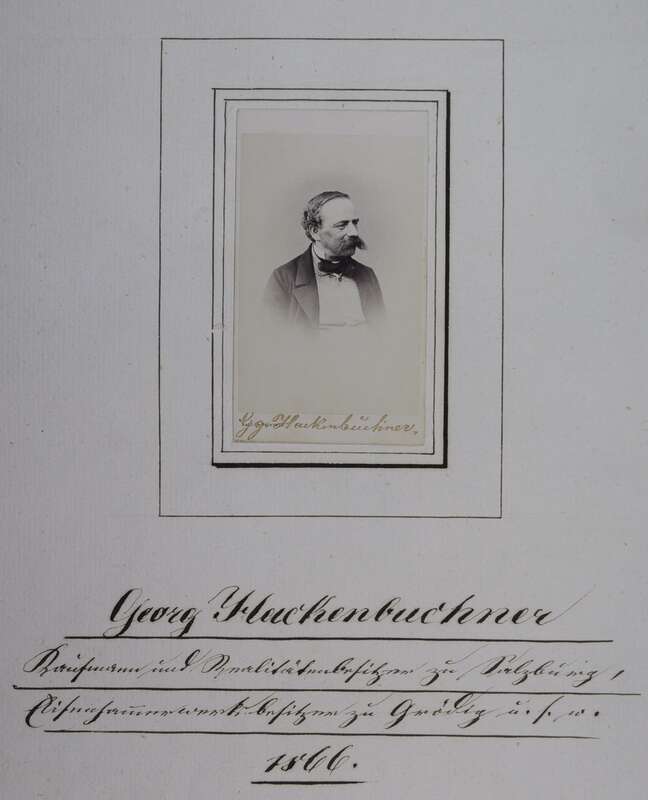 Gg. Hackenbuchner.
Georg Hackenbuchner
Kaufmann und Realitätenbesitzer zu Salzburg,
Eisenhammerwerksbesitzer zu Grödig u. s. w.
1866.